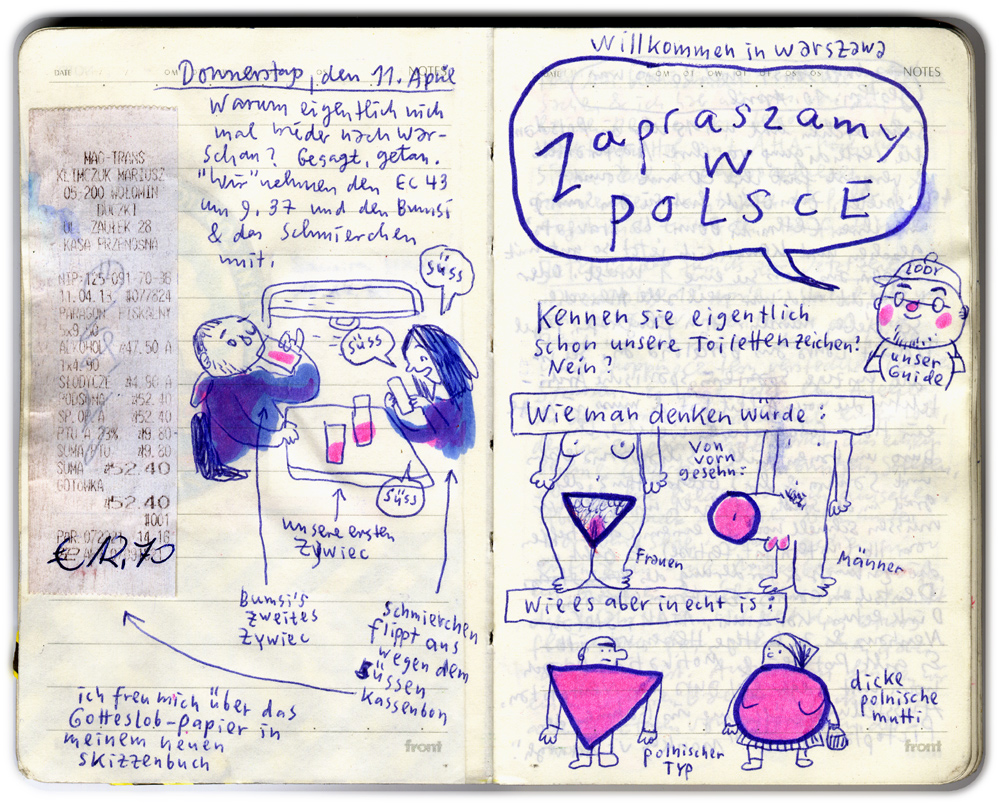 DATE
NOTES
Donnerstag, den 11. April
Warum eigentlich nich
mal wieder nach War-
schau? Gesagt, getan.
"Wir" nehmen den EC 43
um 9.37 und den Bumsi
& das Schmierchen
mit.
MAG-TRANS
KLIMCZUK MARIUSZ
05-200 WOŁOMIN
DUCZKI
UL. ZAUŁEK 28
KASA PRZENOŚNA
NIP:125-091-70-36
11.04.13
PARAGON FISKALNY
5x9,50
ALKOHOL #47.50 A
1x4.90
SŁODYCZE #4.90 A
#52.40
SP.OP.A #52.40
PTU A 23% #9.80
SUMA PTU #9.80
SUMA #52.40
GOTÓWKA
#52.40
#001
14:16
€ 12,70
süss
süss
süss
unsere ersten
Żywiec
Bumsi's
zweites
Żywiec
Schmierchen
flippt aus
wegen dem
süssen
Kassenbon
ich freu mich über das
Gotteslob-papier in
meinem neuen
Skizzenbuch
front
Willkommen in Warszawa
NOTES
Zapraszamy
w
POLSCE
ŁODY
unser
Guide
Kennen sie eigentlich
schon unsere Toilettenzeichen?
Nein?
Wie man denken würde:
von
vorn
gesehn:
Frauen
Männer
Wie es aber in echt is:
polnischer
TYP
dicke
polnische
mutti
front